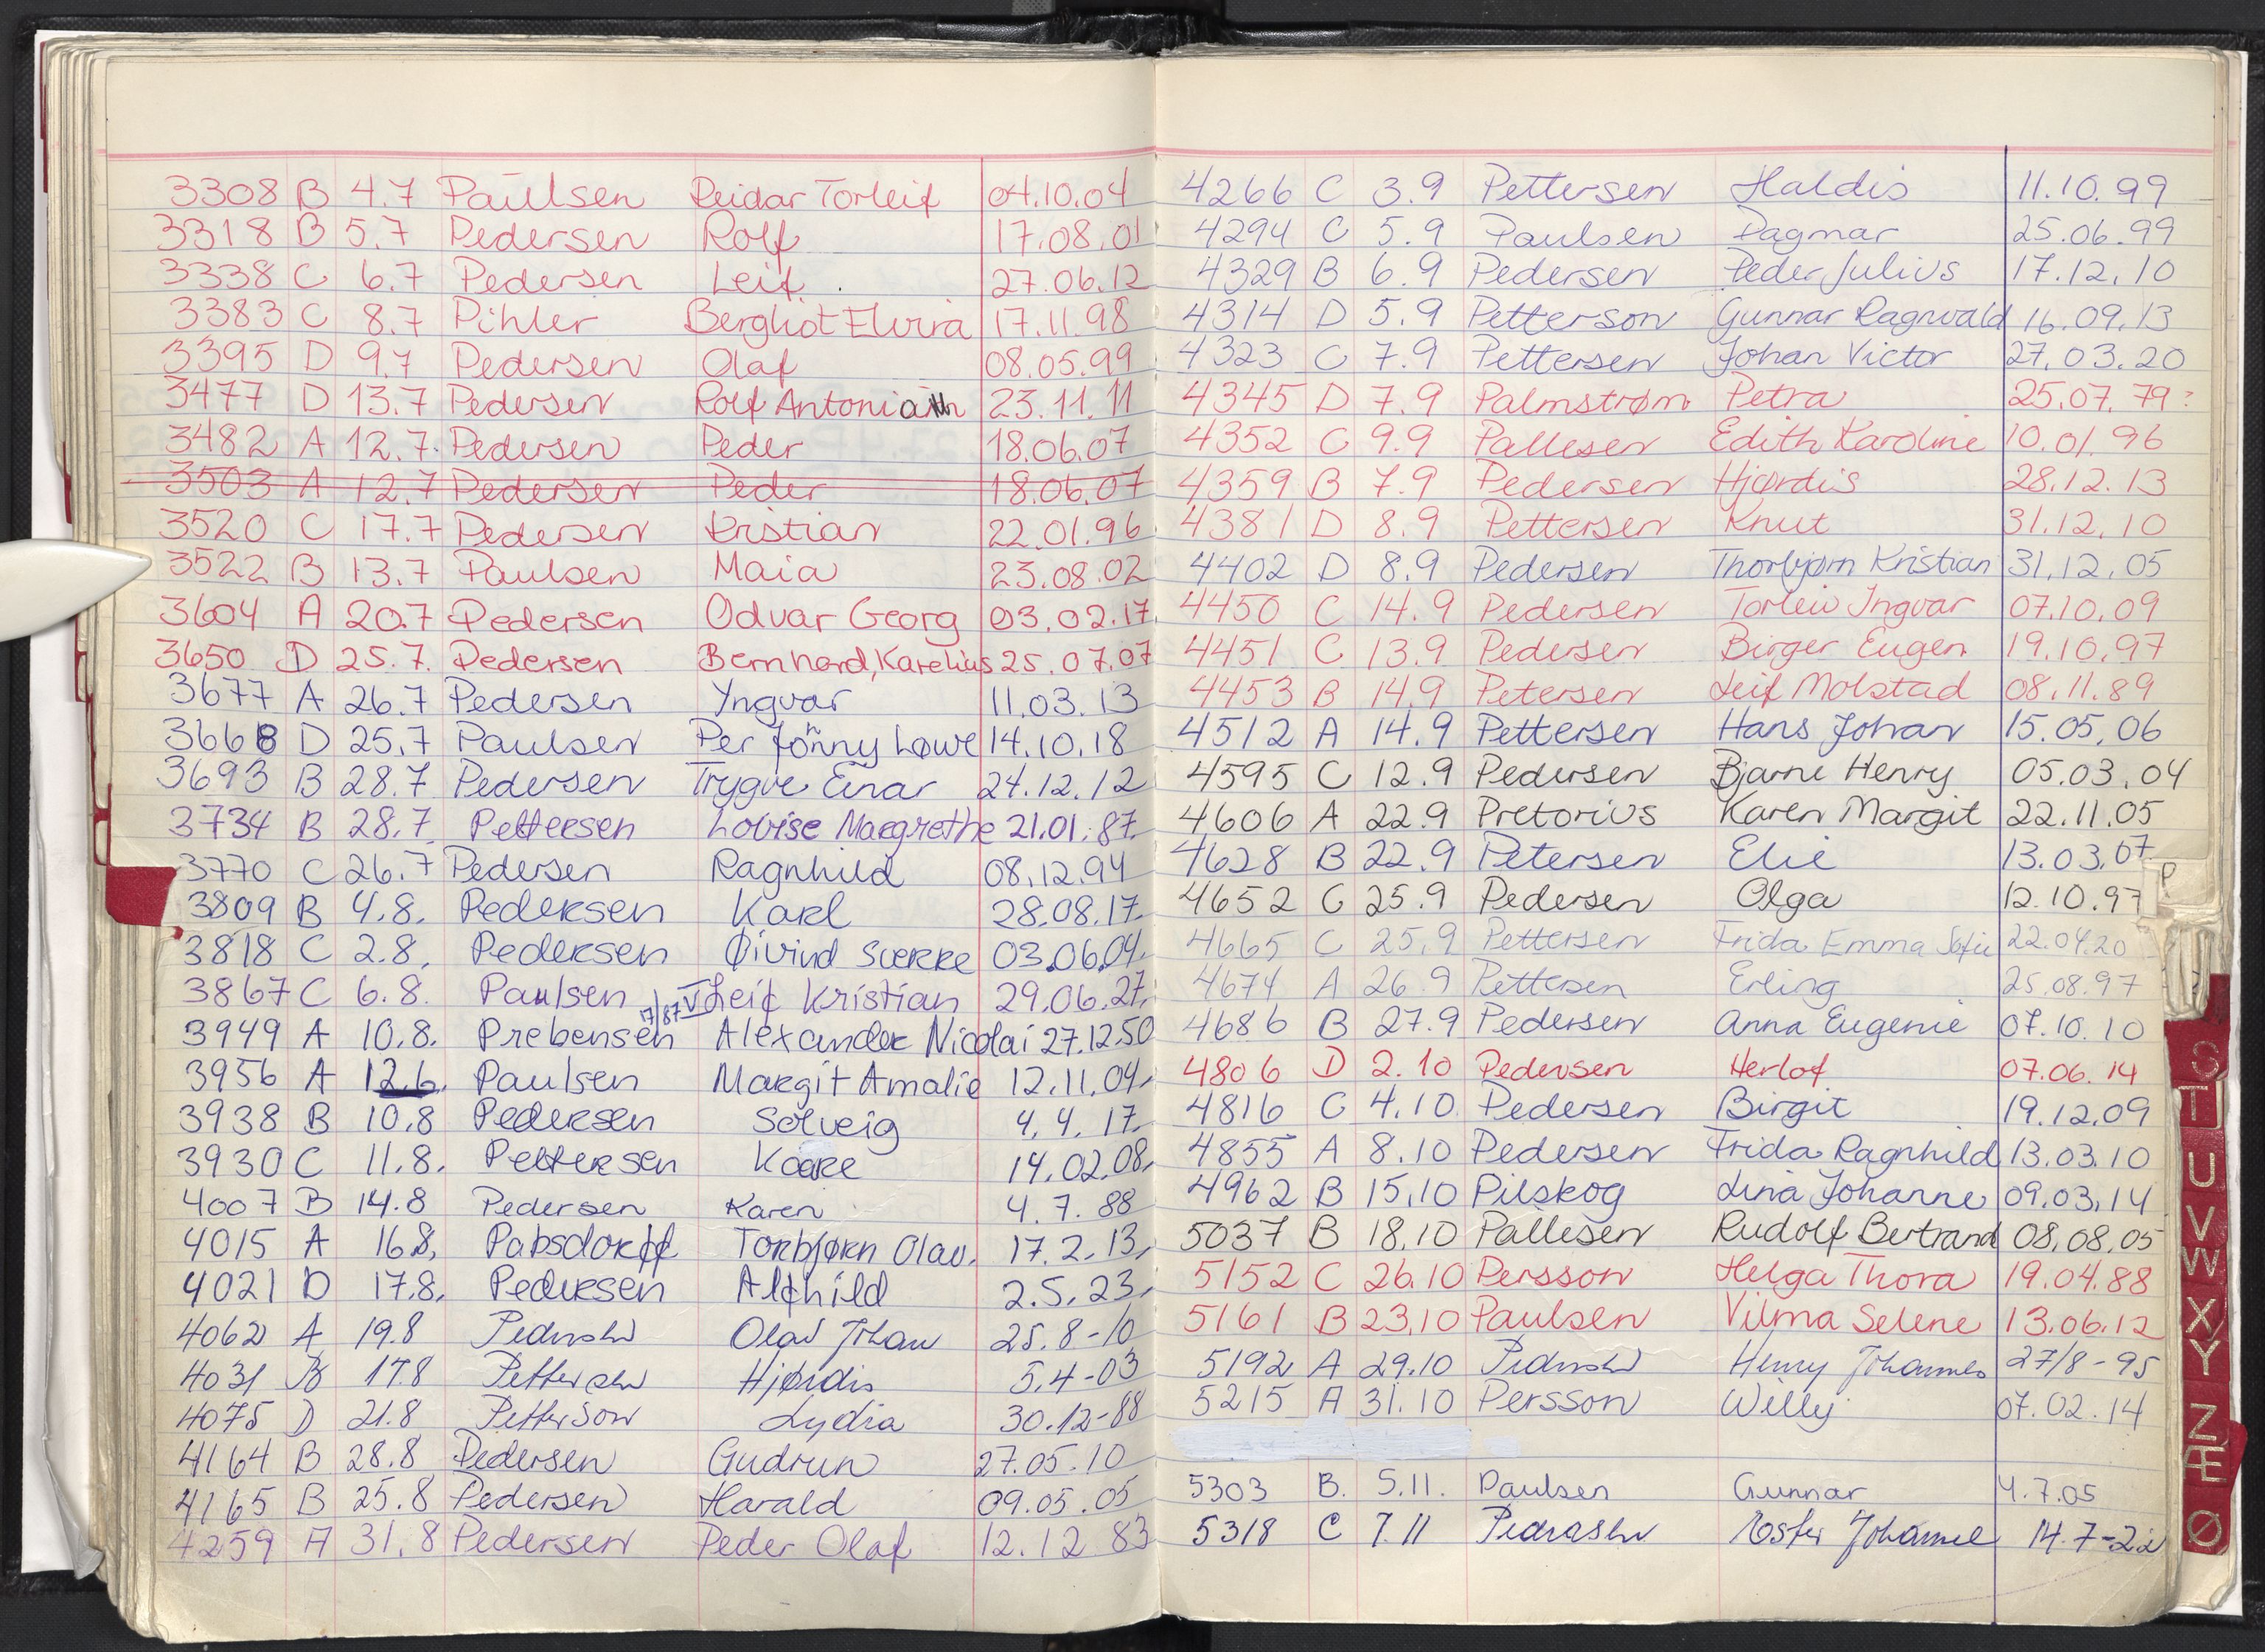 3308 B 4.7 Paulsen Reidar Torleif 04.10.04
3318 B 5.7 Pedersen Rolf 17.08.01
3338 C 6.7 Pedersen Leif 27.06.12
3383 C 8.7 Pihler Bergliot Elvira 17.11.98
3395 D 9.7 Pedersen Olaf 08.05.99
3477 D 13.7 Pedersen Rolf 23.11.11
3482 A 12.7. Pedersen Peder 18.06.07
3503 A 12.7 Pedersen Peder 18.06.07
3520 C 17.7 Pedersen Kristian 22.01.96
3522 B 13.7 Paulsen Maia 23.08.02
3604 A 20.7 Pedersen Odvar Georg 03.02.17
3650 D 25.7. Pedersen Bernhard, Karelius 25.07.07
3677 A 26.7 Pedersen Yngvar 11.03.13
3668 D 25.7 Paulsen Per Jonny Løwe 14.10.18
3693 B 28.7 Pedersen Trygve Einar 24.12.12
3734 B 28.7 Pettersen Lovise Margrethe 21.01.87.
3770 C 26.7 Pedersen Ragnhild 08.12.94
3809 B 4.8. Pedersen Karl 28.08.17.
3818 C 2.8. Pedersen Øivind Sverre 03.06.04.
3867 C 6.8. Paulsen Leif Kristian 29.06.27.
3949 A 10.8. Prebensen 7/87 Alexander Nicolai 27.12.50
3956 A 12.6. Paulsen Margit Amalie 12.11.04.
3938 B 10.8 Pedersen Solveig 4.4.17.
3930 C 11.8. Pettersen Kaare 14.02.08.
4007 B 14.8 Pedersen Karen 4.7.88
4015 A 16.8. Pabsdorff Torbjørn Olav. 17.2.13.
4021 D 17.8. Pedersen Alfhild 2.5.23.
4062 A 19.8 Pedersen Olav Johan 25.8-10
4031 B 17.8 Pettersen Hjørdis 5.4-03
4075 D 21.8 Petterson Lydia 30.12-88
4164 B 28.8 Pedersen Gudrun 27.05.10
4165 B 25.8 Pedersen Harald 09.05.05
4259 A 31.8 Pedersen Peder Olaf 12.12.83
4266 C 3.9 Pettersen Haldis 11.10.99
4294 C 5.9 Paulsen Dagmar 25.06.99
4329 B 6.9 Pedersen Peder Julius 17.12.10
4314 D 5.9 Petterson Gunnar Ragnvald 16.09.13
4323 C 7.9 Pettersen Johan Victor 27.03.20
4345 D 7.9 Palmstrøm Petra 25.07.79?
4352 C 9.9 Pallesen Edith Karoline 10.01.96
4359 B 7.9 Pedersen Hjørdis 28.12.13
4381 D 8.9 Pettersen Knut 31.12.10
4402 D 8.9 Pedersen Thorbjørn Kristian 31.12.05
4450 C 14.9 Pedersen Torleiv Ingvar 07.10.09
4451 C 13.9 Pedersen Birger Eugen 19.10.97
4453 B 14.9 Petersen Leif Molstad 08.11.89
4512 A 14.9 Pettersen Hans Johan 15.05.06
4595 C 12.9 Pedersen Bjarne Henry 05.03.04
4606 A 22.9 Pretorius Karen Margit 22.11.05
4628 B 22.9 Petersen Elie 13.03.07
P
4652 C 25.9 Pedersen Olga 12.10.97
4665 C 25.9 Pettersen Frida Emma Sofie 22.04.20
4674 A 26.9 Pettersen Erling 25.08.97
4686 B 27.9 Pedersen Anna Eugenie 07.10.10
4806 D 2.10 Pedersen Herlof 07.06.14
4816 C 4.10 Pedersen Birgit 19.12.09
4855 A 8.10 Pedersen Frida Ragnhild 13.03.10
4962 B 15.10 Pilskog Lina Johanne 09.03.14
5037 B 18.10 Pallesen Rudolf Bertrand 08.08.05
5152 C 26.10 Persson Helga Thora 19.04.88
5161 B 23.10 Paulsen Vilma Selene 13.06.12
5192 A 29.10 Pedersen Henry Johannes 27/8-95
5215 A 31.10 Persson Willy 07.02.14
5303 B. 5.11. Paulsen Gunnar 4.7.05
5318 C 7.11 14.7-22
S
T
U
V
W
X
Y
Z
Æ
Ø